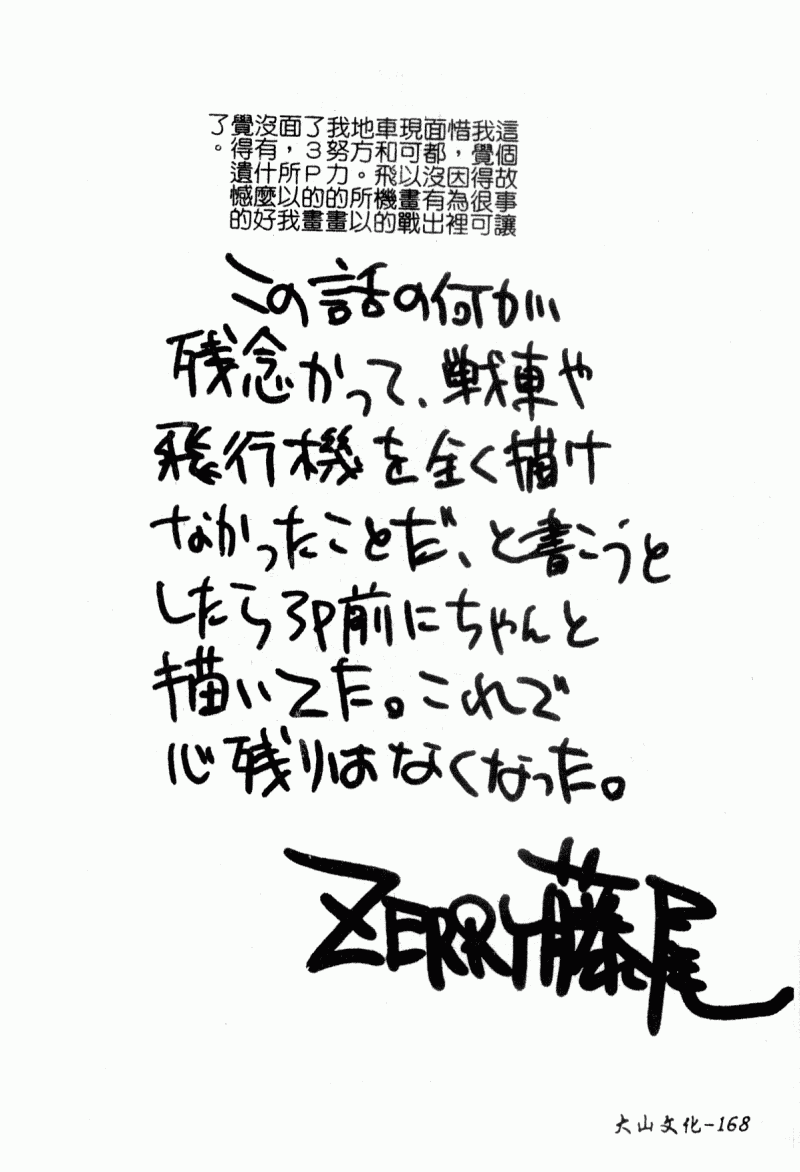 這個故事讓
我覺得很可
惜，因為裡
面都沒有出
現可以畫戰
車和飛機的
地方。所以
我努力的畫
了3P的畫
面，所以我
沒有什麼好
覺得遺憾的
了。
この話の何が
残念かって、戦車や
飛行機を全く描け
なかったことだ、と書こうと
したら3P前にちゃんと
描いてた。これで
心残りはなくなった。
ZERRY藤尾
大山文化-168